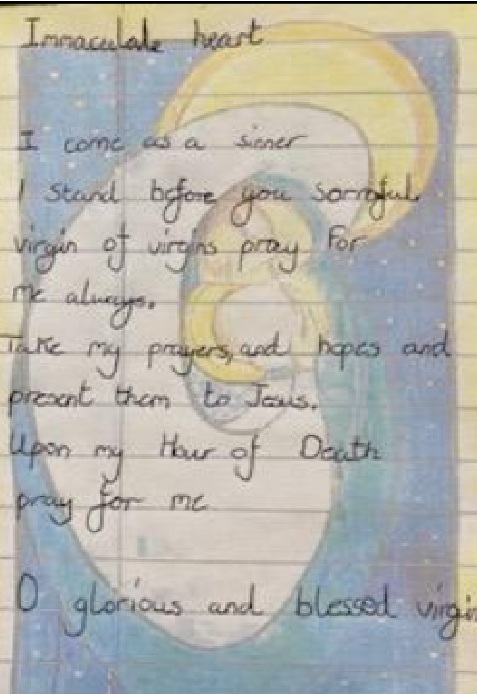 Immaculate heart
I come as a sinner
I stand before you sorroful
virgin of virgins pray for
me always.
Take my prayers, and hopes and
present them to Jesus.
Upon my Hour of Death
pray for me
O glorious and blessed virgin